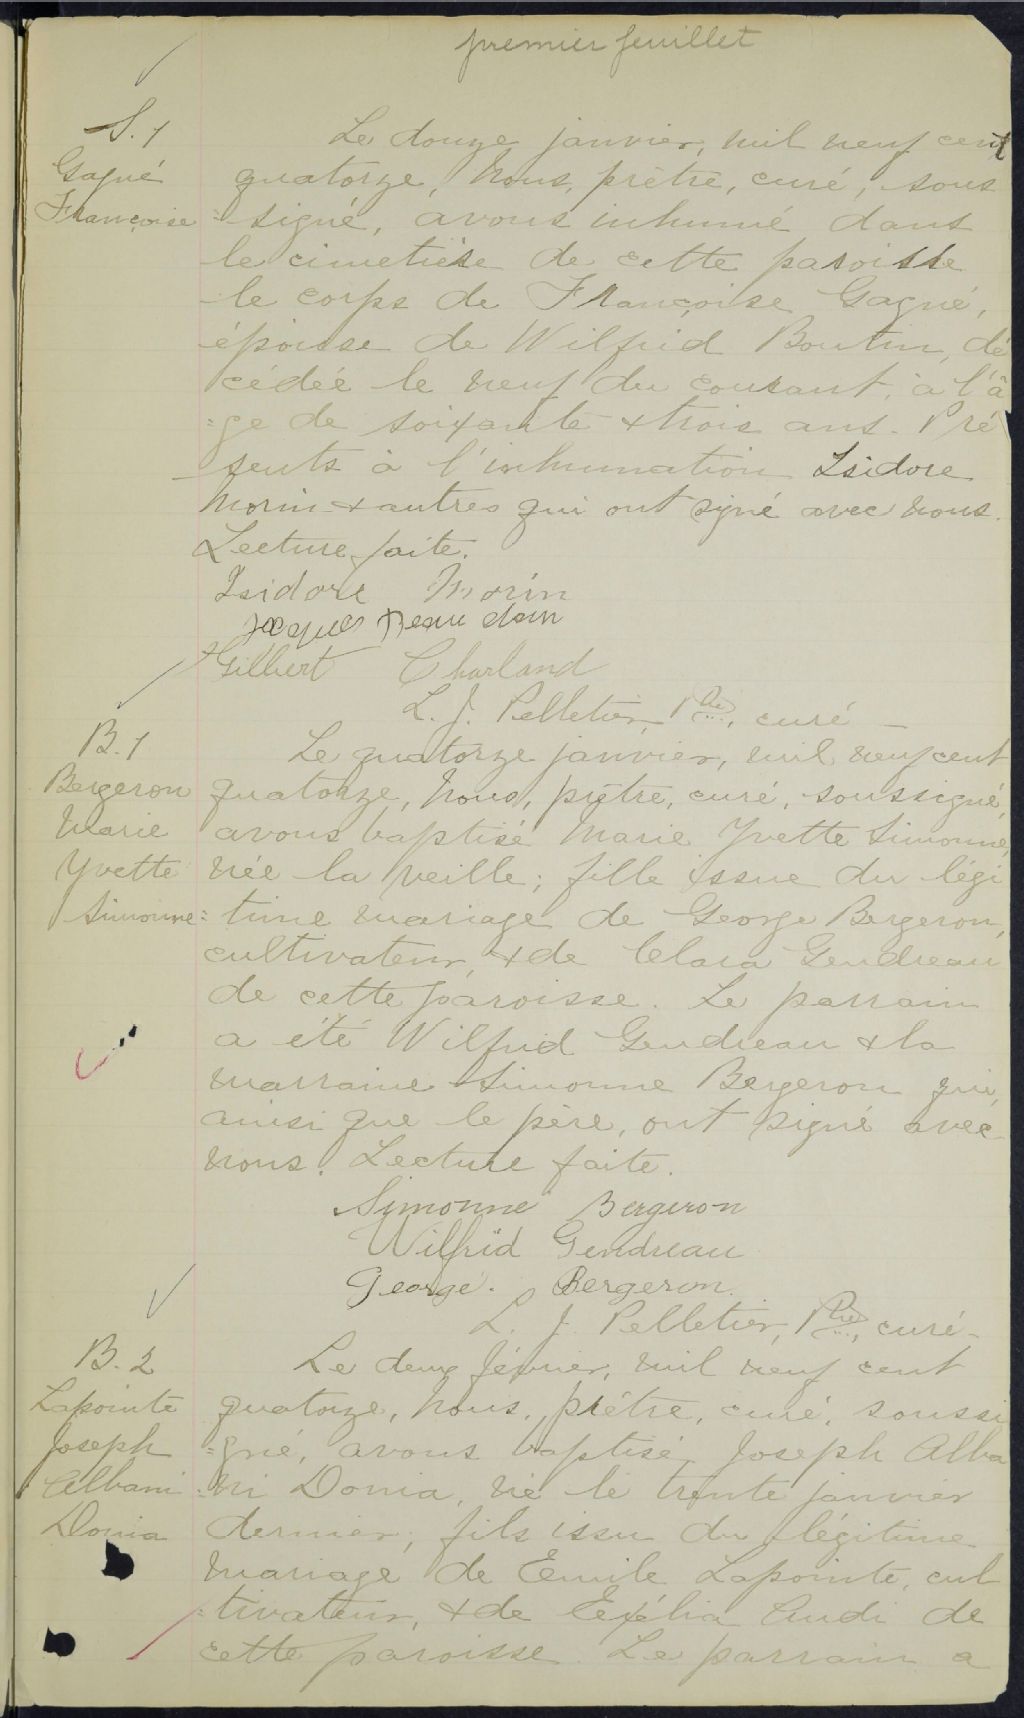 premier feuillet
S. 1
Gagné
Françoise
Le douze janvier, mil neuf cent
quatorze, Nous, prêtre, curé, sous
=signé, avons inhumé dans
le cimetière de cette paroisse
le corps de Françoise Gagné,
épouse de Wilfrid Boutin, dé
cédée le neuf du courant, à l'â
=ge de soixante & trois ans. Pré
sents à l'inhumation Isidore
Morin & autres qui ont signé avec nous.
Lecture faite.
Isidore Morin
Jacques Beaudoin
Gilbert Charland
L. J. Pelletier, Ptre, curé
B. 1
Bergeron
Marie
Yvette
Simonne
Le quatorze janvier, mil neuf cent
quatorze, Nous, prêtre, curé, soussigné,
avons baptisé Marie Yvette Simonne,
née la veille; fille issue du légi
=time mariage de George Bergeron,
cultivateur, & de Clara Gendreau
de cette paroisse. Le parrain
a été Wilfrid Gendreau & la
marraine Simonne Bergeron qui,
ainsi que le père, ont signé avec
nous. Lecture faite.
Simonne Bergeron
Wilfrid Gendreau
George. Bergeron.
L. J. Pelletier, Ptre, curé
B. 2
Lapointe
Joseph
Albani
Donia
Le deux février, mil neuf cent
quatorze, Nous, prêtre, curé, soussi
=gné, avons baptisé Joseph Alba
=ni Donia, né le trente janvier
dernier; fils issu du légitime
mariage de Emile Lapointe, cul
=tivateur, & de de
cette paroisse. Le parrain a